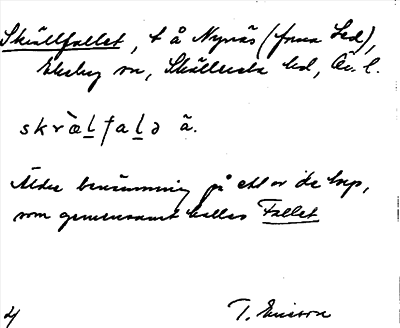 Skrällfallet, t å Nynäs (förra Led),
Ekeby sn, Skyllersta hd, Ör. l.
skrælfalə ä.
Äldre benämning på ett av de torp,
som gemensamt kallas Fallet
T. Ericsson